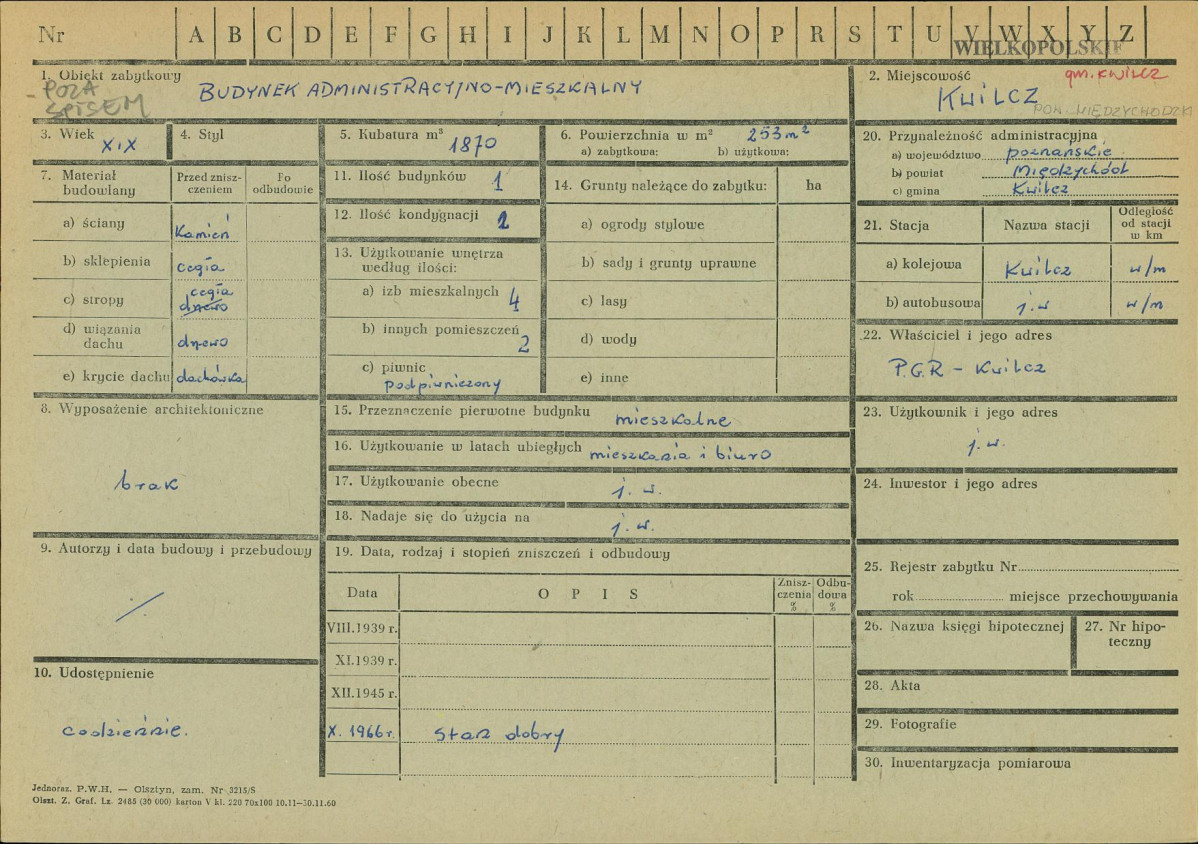 Nr A B C D E F G H I J K L M N O P R S T U V W X Y Z
WIELKOPOLSKIE
1. Obiekt zabytkowy
- POZA SPISEM
BUDYNEK ADMINISTRACYJNO-MIESZKALNY
2. Miejscowość
gm. KWILCZ
KWILCZ
POW. MIĘDZYCHODZKI
3. Wiek
XIX
4. Styl
5. Kubatura m³
1870
6. Powierzchnia w m² 253 m²
a) zabytkowa: b) użytkowa:
7. Materiał budowlany
Przed zniszczeniem
Po odbudowie
a) ściany kamień
b) sklepienia cegła
c) stropy cegła drewo
d) wiązania dachu drewo
e) krycie dachu dachówka
8. Wyposażenie architektoniczne
brak
9. Autorzy i data budowy i przebudowy
/
10. Udostępnienie
codziennie.
11. Ilość budynków 1
12. Ilość kondygnacji 2
13. Użytkowanie wnętrza według ilości:
a) izb mieszkalnych 4
b) innych pomieszczeń 2
c) piwnic
podpiwniczony
14. Grunty należące do zabytku: ha
a) ogrody stylowe
b) sady i grunty uprawne
c) lasy
d) wody
e) inne
15. Przeznaczenie pierwotne budynku mieszkalne
16. Użytkowanie w latach ubiegłych mieszkania i biuro
17. Użytkowanie obecne j. w.
18. Nadaje się do użycia na j. w.
19. Data, rodzaj i stopień zniszczeń i odbudowy
Data OPIS Zniszczenia % Odbudowa %
VIII.1939 r.
XI.1939 r.
XII.1945 r.
X. 1966 r. stan dobry
20. Przynależność administracyjna
a) województwo poznańskie
b) powiat Międzychód
c) gmina Kwilcz
21. Stacja Nazwa stacji Odległość od stacji w km
a) kolejowa Kwilcz w/m
b) autobusowa j. w w/m
22. Właściciel i jego adres
P.G.R - Kwilcz
23. Użytkownik i jego adres
j. w.
24. Inwestor i jego adres
25. Rejestr zabytku Nr
rok miejsce przechowywania
26. Nazwa księgi hipotecznej
27. Nr hipoteczny
28. Akta
29. Fotografie
30. Inwentaryzacja pomiarowa
Jednoraz. P.W.H. — Olsztyn, zam. Nr 3215/S
Olszt. Z. Graf. Lz. 2485 (30 000) karton V kl. 220 70x100 10.11—30.11.60